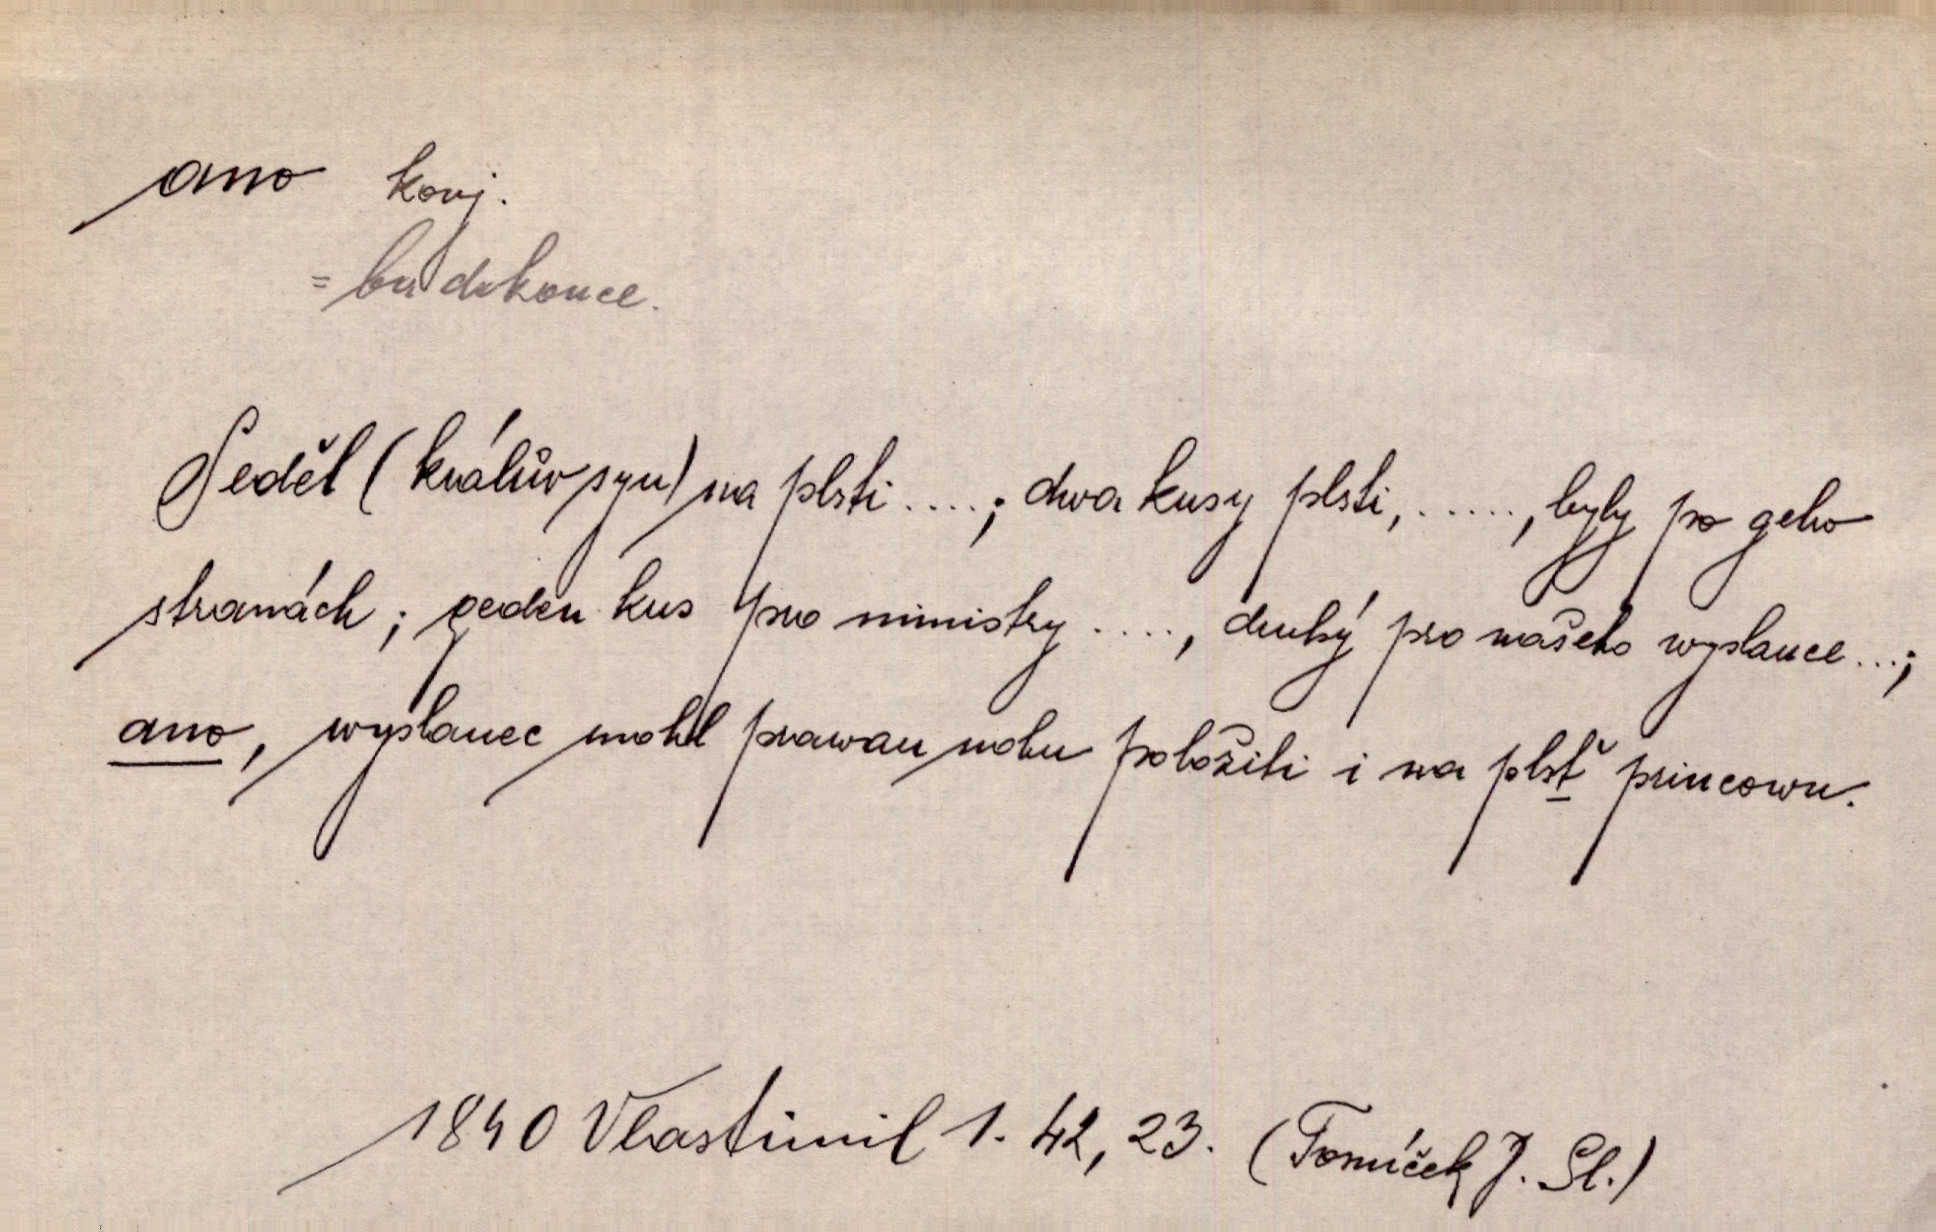 ano konj.
= ba dokonce.
Seděl (králůw syn) na plsti ....; dwa kusy plsti, ....., byly po geho
stranách; geden kus pro ministry ...., druhý pro našeho wyslance ...;
ano, wyslanec mohl prawau nohu položiti i na plsť princowu.
1840 Vlastimil 1. 42, 23. (Tomíček J. Sl.)